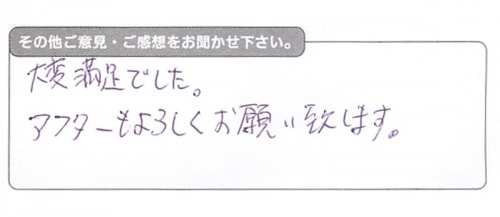 その他ご意見・ご感想をお聞かせ下さい。
大変満足でした。
アフターもよろしくお願い致します。